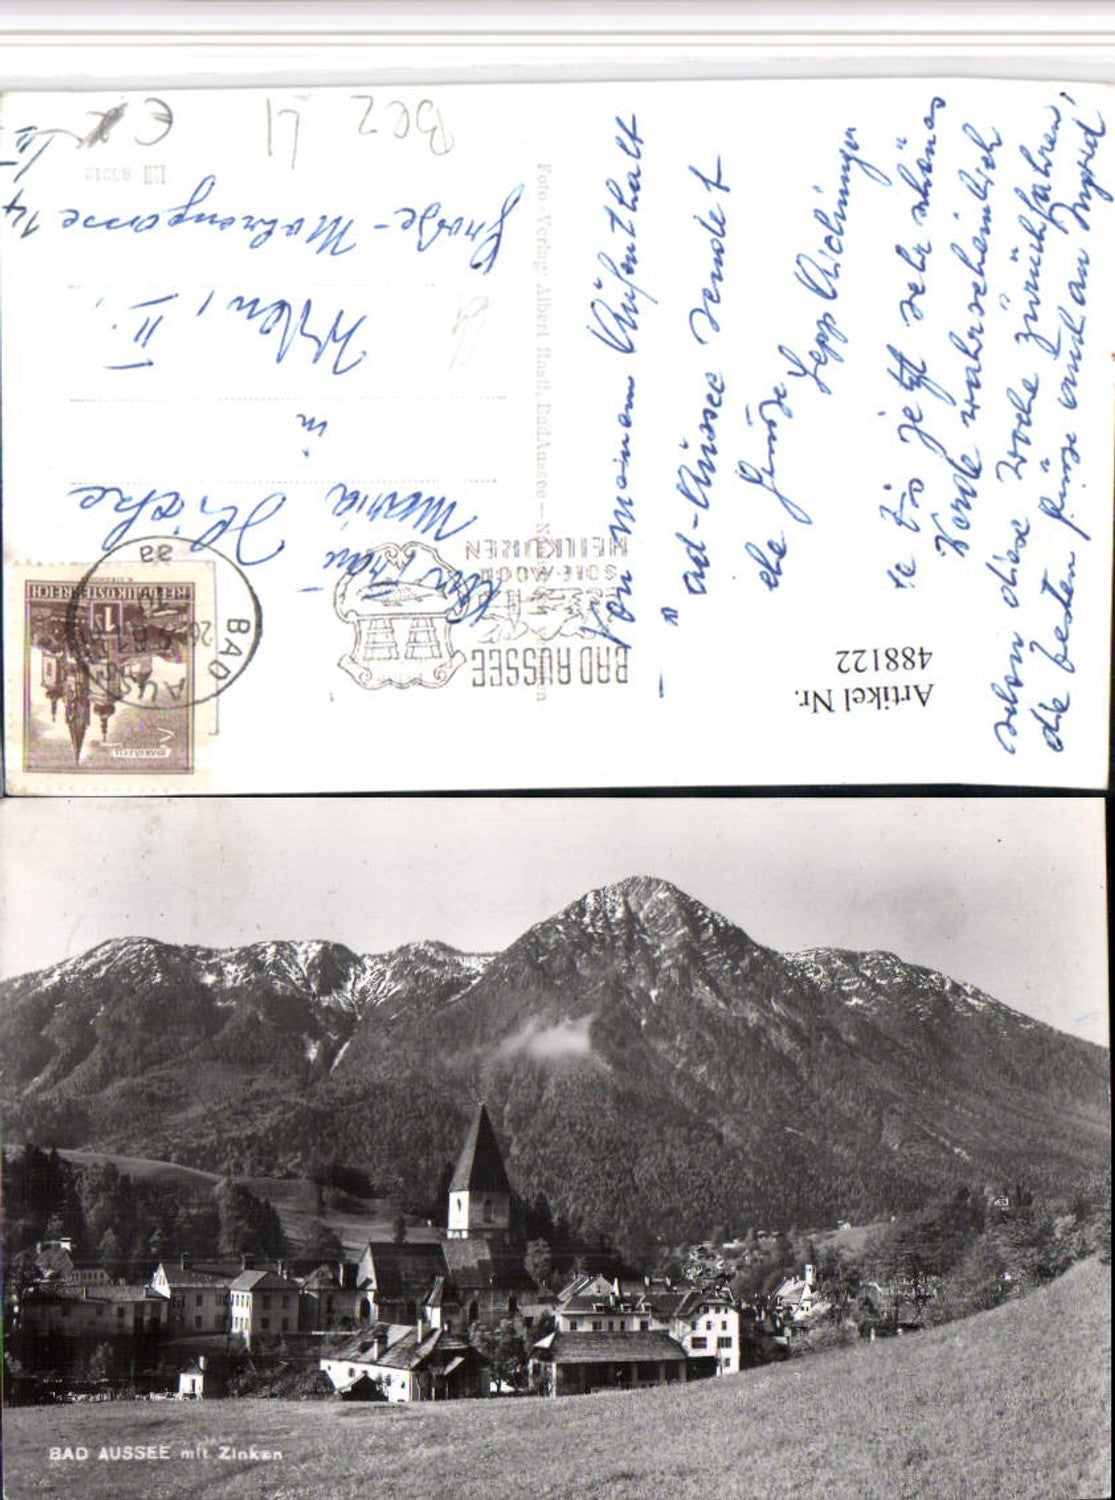 Von meinem Aufenthalt
ad-Aussee sendet
die Grüße
Sepp Aichinger
Es ist jetzt sehr schönes
Werde wahrscheinlich
schon diese Woche zurückfahren,
die besten Grüße auch an Ingrid!
Artikel Nr.
488122
Foto-Verlag Albert Rastl, Bad Aussee
BAD AUSSEE
SOLE-MOOR
HEILKUREN
BAD AUSSEE
8a
REPUBLIK ÖSTERREICH
Frau
Maria
in
Wien, II.,
Große-Mohrengasse 14
Bez Li
BAD AUSSEE mit Zinken